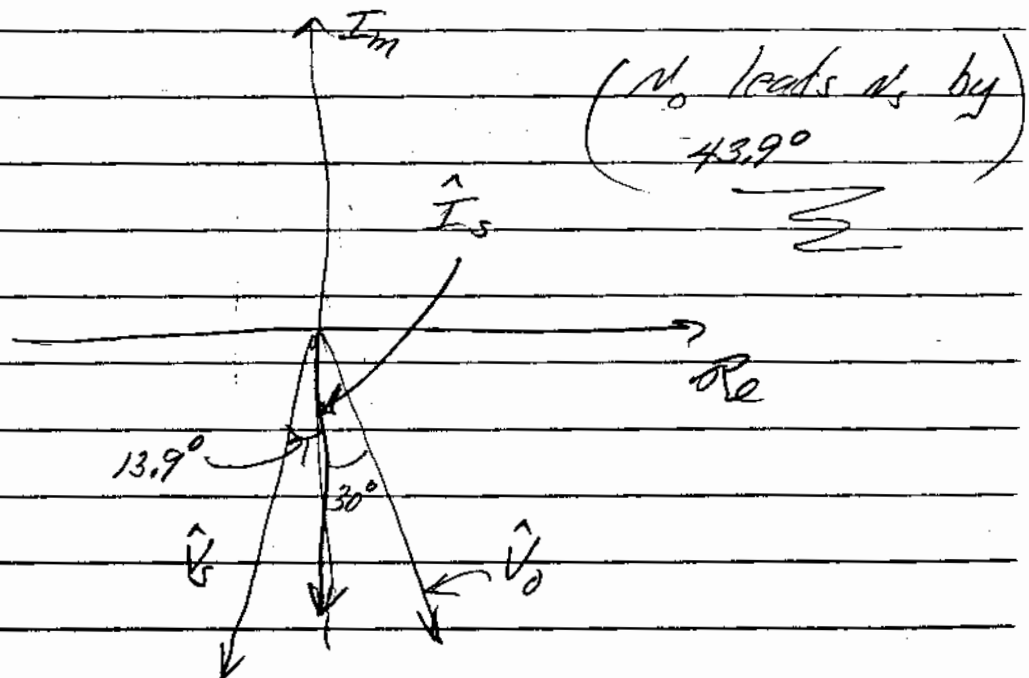 Im
(v_o leads v_s by
43.9°)
Î_s
Re
13.9°
30°
V̂_s
V̂_o